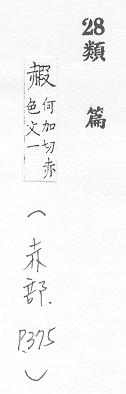 28類篇
赮何加切赤
色文一
(赤部. P.375)